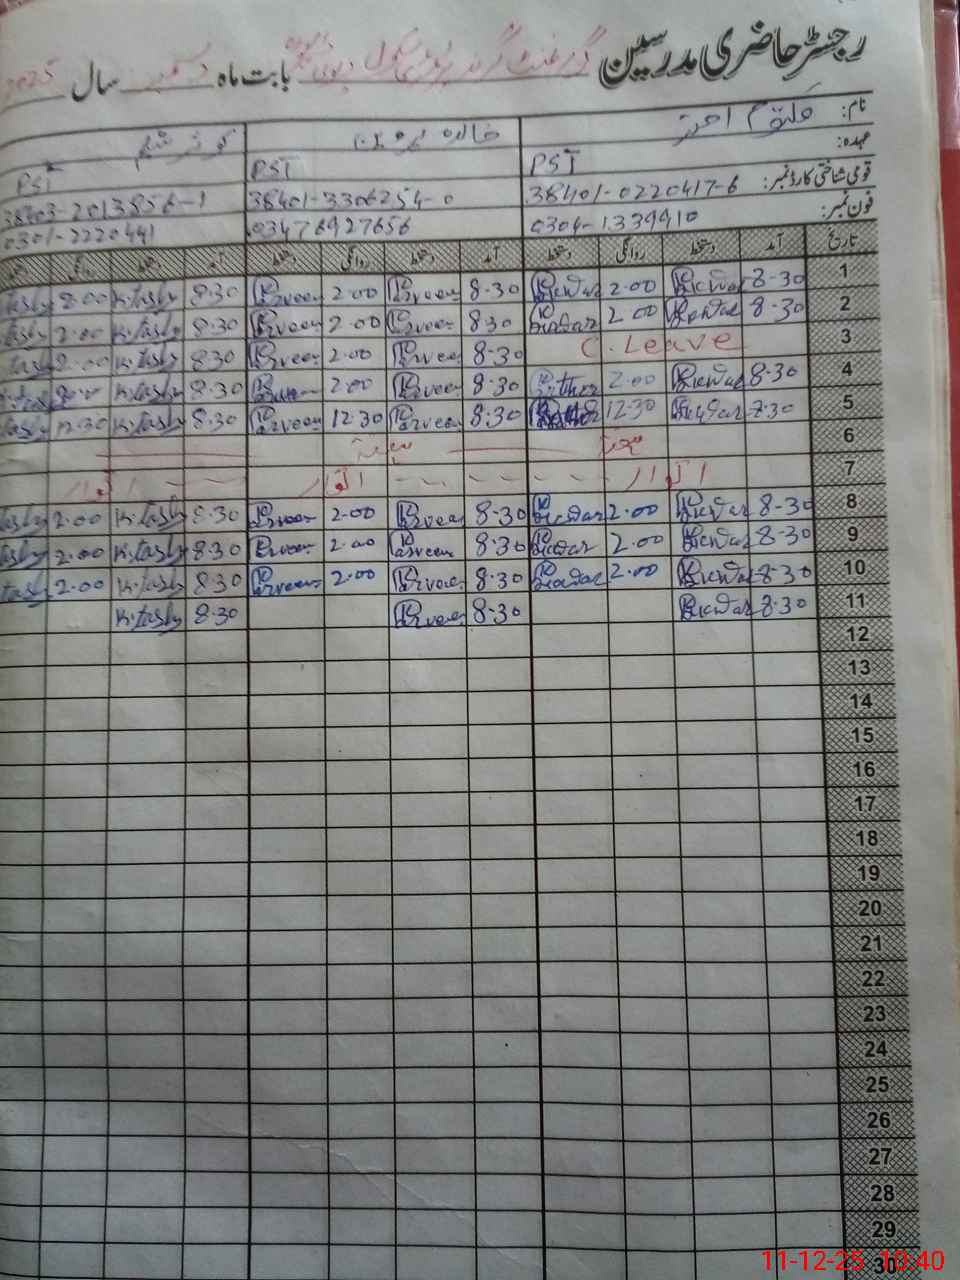 رجسٹر حاضری مدرسین گورنمنٹ گرلز پرائمری سکول بابت ماہ دسمبر سال 2025
نام:
خالدہ پروین کوثر
عہدہ: PST PST PST
قومی شناختی کارڈ نمبر: 38401-0220417-6 38401-3306254-0 38403-2013856-1
فون نمبر: 0304-1339910 03476927656 0301-2220441
تاریخ آمد دستخط روانگی دستخط آمد دستخط روانگی دستخط آمد دستخط روانگی دستخط
1 8-30 2.00 8.30 Perveen 2.00 Perveen 8.30 K.tasly 2.00 tasly
2 8-30 2.00 830 Perveen 2.00 Perveen 8.30 K.tasly 2.00 tasly
3 C.Leave 8-30 Perveen 2.00 Perveen 8.30 K.tasly 2.00 tasly
4 8-30 2.00 8.30 Perveen 2.00 8.30 K.tasly 2.00
5 7.30 12.30 8.30 Parveen 12.30 Parveen 8.30 K.tasly 12.30 tasly
6 ہفتہ ہفتہ
7 اتوار اتوار اتوار
8 8-30 2.00 8.30 Perveen 2.00 Perveen 8.30 K.tasly 2.00 tasly
9 8-30 2.00 8.30 Parveen 2.00 Perveen 8.30 K.tasly 2.00 tasly
10 8.30 2.00 8.30 Perveen 2.00 Perveen 8.30 K.tasly 2.00 tasly
11 8.30 8.30 Perveen 8.30 K.tasly
12
13
14
15
16
17
18
19
20
21
22
23
24
25
26
27
28
29
30
11-12-25 10:40